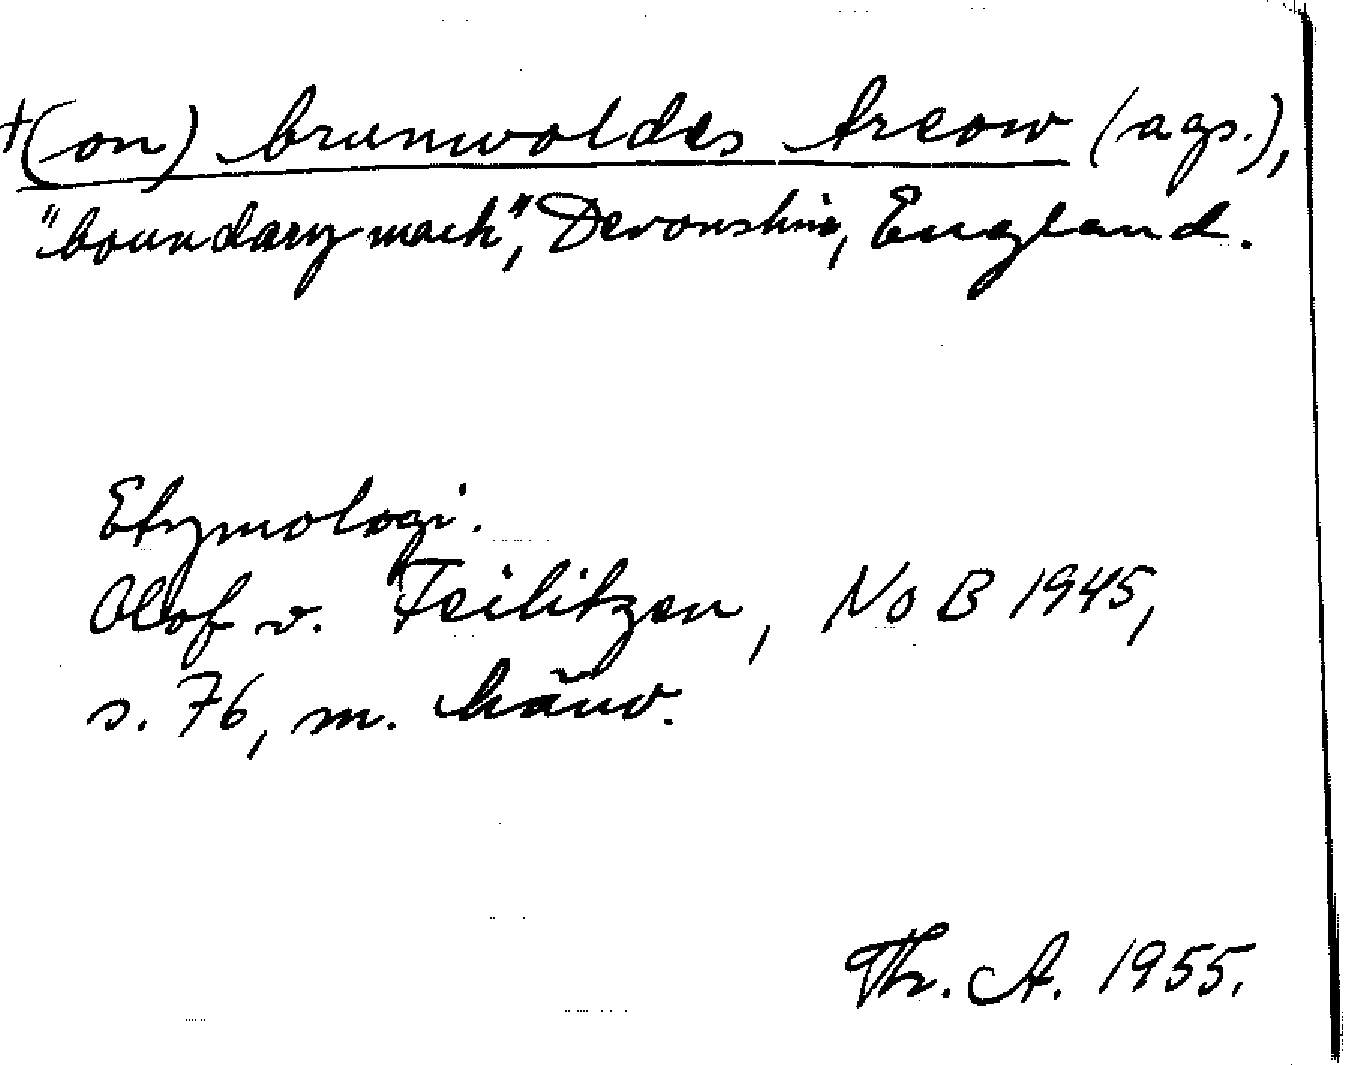 †(on) brunwoldes treow (ags.),
"boundary mark", Devonshire, England.
Etymologi.
Olof v. Feilitzen, NoB 1945,
s. 76, m. hänv.
Th. A. 1955.